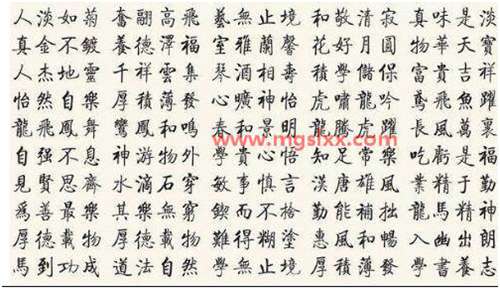 人淡如菊 奮翮高飛 藝無止境 和敬清寂 真味是淡
真金不鍍 養德澤福 室雅蘭馨 花好月圓 物華天寶
人杰地靈 千祥雲集 琴酒相壽 積學儲 富貴吉祥
怡然自樂 厚積薄發 心曠神怡 虎嘯龍吟 鳶飛魚躍
龍飛鳳舞 鸞鳳和鳴 春和景明 龍騰虎躍 長風萬裏
www.mgslxx.com
自强不息 神游物外 學貴心悟 知足常樂 吃虧是福
見賢思齊 水滴石穿 敏事慎言 漢唐雄風 業精于勤
爲善最樂 其樂無窮 鍥而不捨 勤能補拙 龍馬精神
厚德載物 厚德載物 難得糊塗 惠風和暢 入幽出朗
馬到功成 道法自然 學無止境 厚積薄發 學書養志